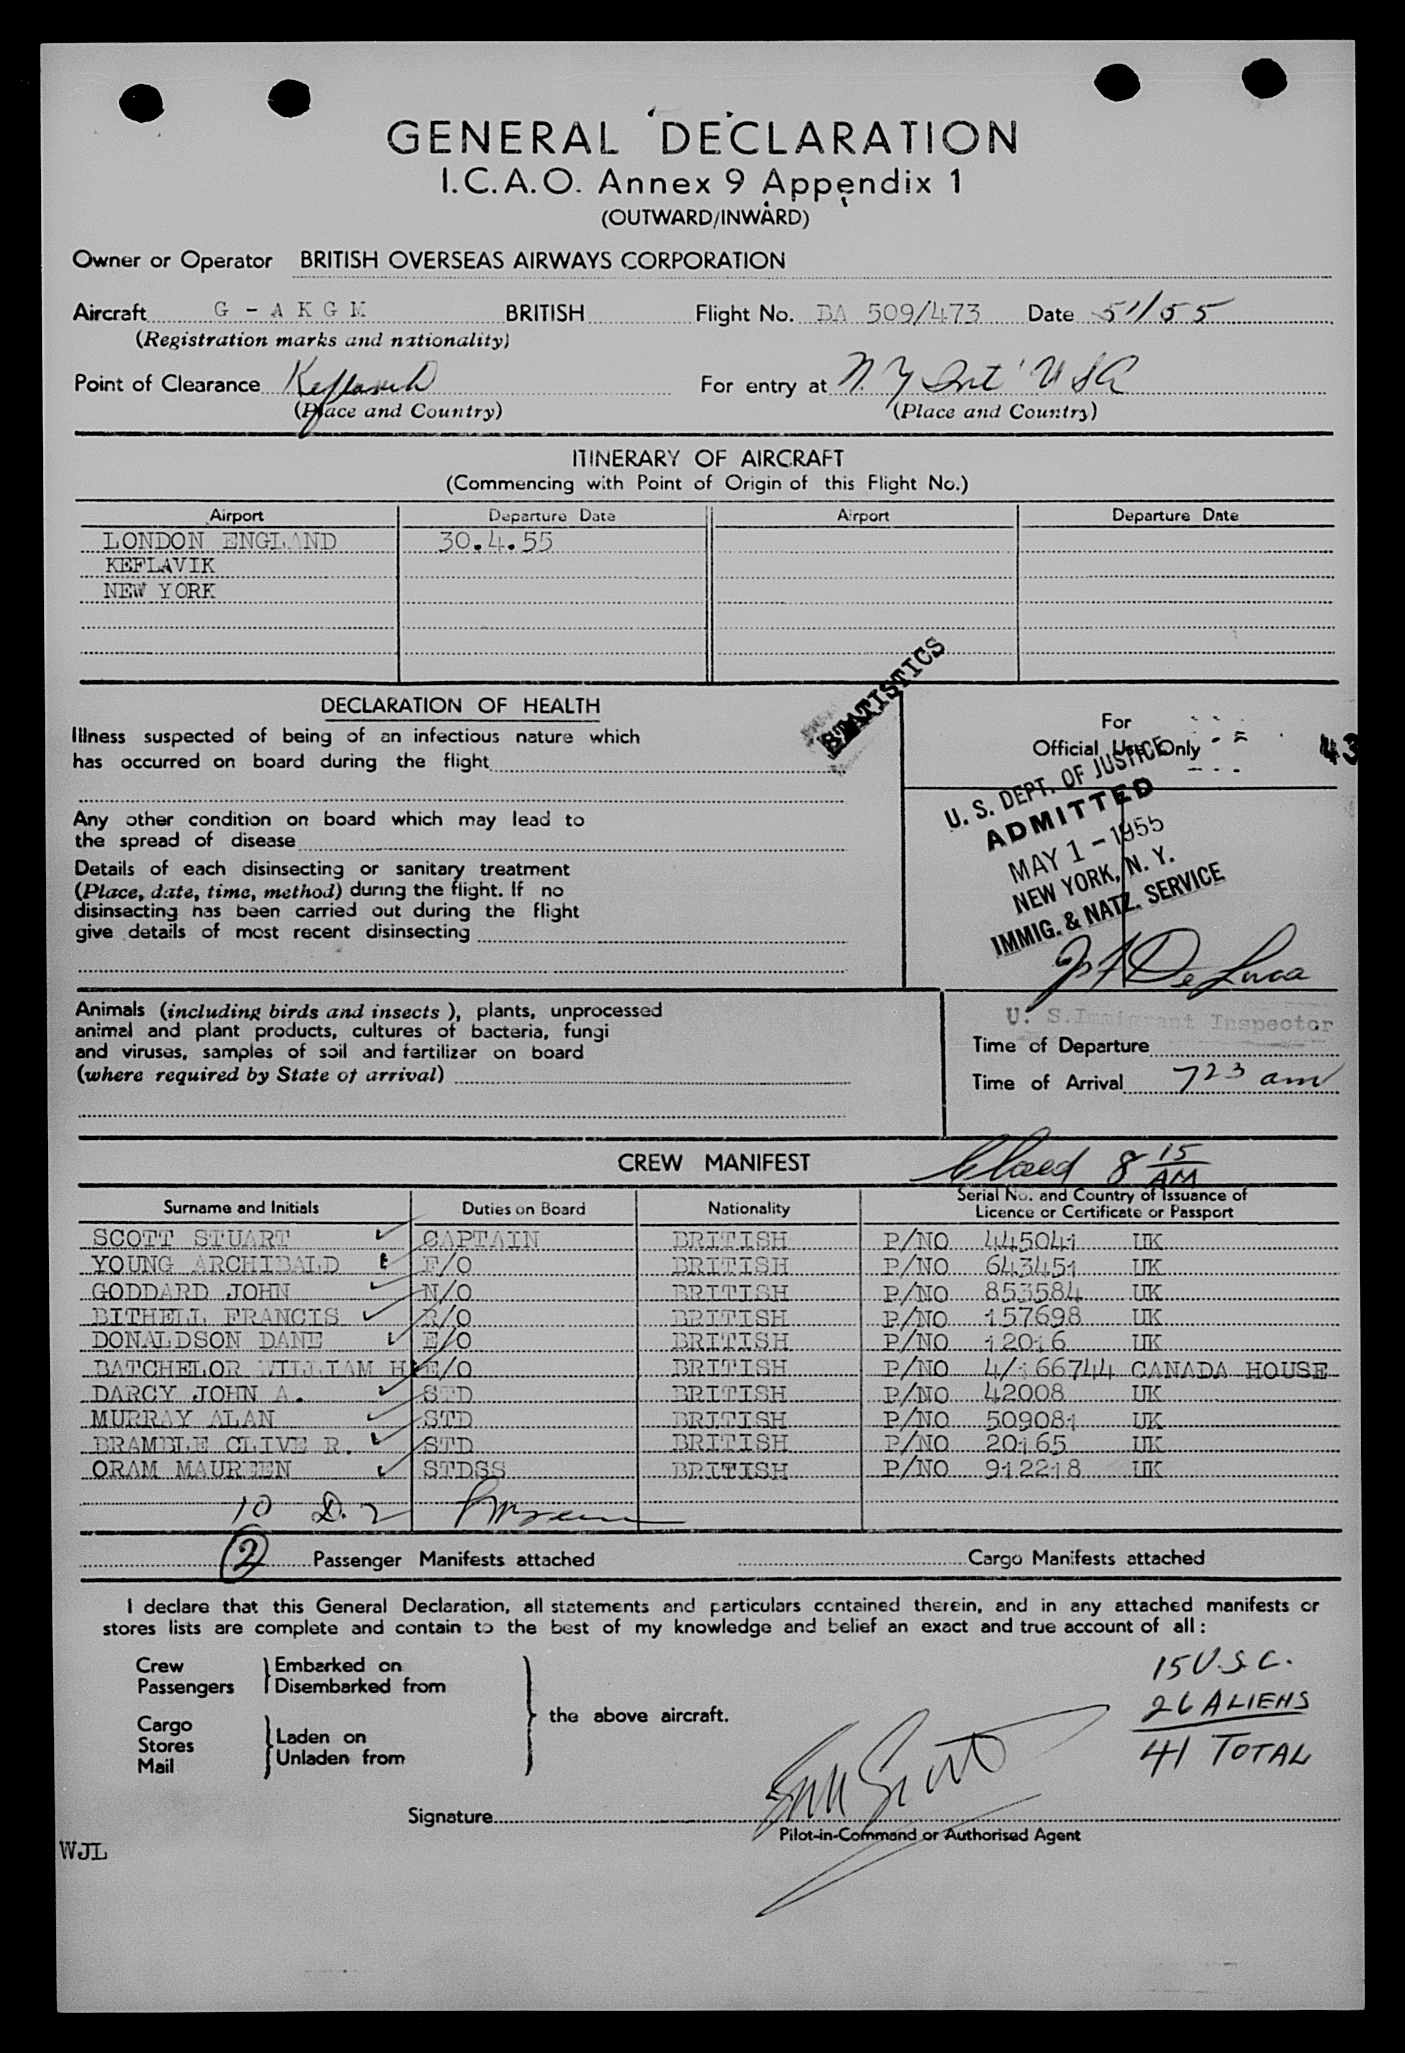 GENERAL DECLARATION
I.C.A.O. Annex 9 Appendix 1
(OUTWARD/INWARD)
Owner or Operator BRITISH OVERSEAS AIRWAYS CORPORATION
Aircraft G - A K G M BRITISH Flight No. BA 509/473 Date 5/1/55
(Registration marks and nationality)
Point of Clearance Keflavik For entry at N. Y Int' USA
(Place and Country) (Place and Country)
ITINERARY OF AIRCRAFT
(Commencing with Point of Origin of this Flight No.)
Airport Departure Date Airport Departure Date
LONDON ENGLAND 30.4.55
KEFLAVIK
NEW YORK
STATISTICS
DECLARATION OF HEALTH
Illness suspected of being of an infectious nature which
has occurred on board during the flight
Any other condition on board which may lead to
the spread of disease
Details of each disinsecting or sanitary treatment
(Place, date, time, method) during the flight. If no
disinsecting has been carried out during the flight
give details of most recent disinsecting
For
Official Use Only
43
U. S. DEPT. OF JUSTICE
ADMITTED
MAY 1 - 1955
NEW YORK, N. Y.
IMMIG. & NATZ. SERVICE
De Luca
U. S. Immigrant Inspector
Animals (including birds and insects), plants, unprocessed
animal and plant products, cultures of bacteria, fungi
and viruses, samples of soil and fertilizer on board
(where required by State of arrival)
Time of Departure
Time of Arrival 7 23 am
CREW MANIFEST Closed 8 15 AM
Surname and Initials Duties on Board Nationality Serial No. and Country of Issuance of
Licence or Certificate or Passport
SCOTT STUART CAPTAIN BRITISH P/NO 445041 UK
YOUNG ARCHIBALD F/O BRITISH P/NO 643451 UK
GODDARD JOHN N/O BRITISH P/NO 853584 UK
BITHELL FRANCIS R/O BRITISH P/NO 157698 UK
DONALDSON DANE E/O BRITISH P/NO 12016 UK
BATCHELOR WILLIAM H E/O BRITISH P/NO 4/166744 CANADA HOUSE
DARCY JOHN A. STD BRITISH P/NO 42008 UK
MURRAY ALAN STD BRITISH P/NO 509081 UK
BRAMBLE CLIVE R. STD BRITISH P/NO 20165 UK
ORAM MAUREEN STDSS BRITISH P/NO 912218 UK
10 D. 2
2 Passenger Manifests attached Cargo Manifests attached
I declare that this General Declaration, all statements and particulars contained therein, and in any attached manifests or
stores lists are complete and contain to the best of my knowledge and belief an exact and true account of all :
Crew Embarked on
Passengers Disembarked from
the above aircraft.
Cargo
Stores Laden on
Mail Unladen from
15 U.S.C.
26 ALIENS
41 TOTAL
Signature
Pilot-in-Command or Authorised Agent
WJL